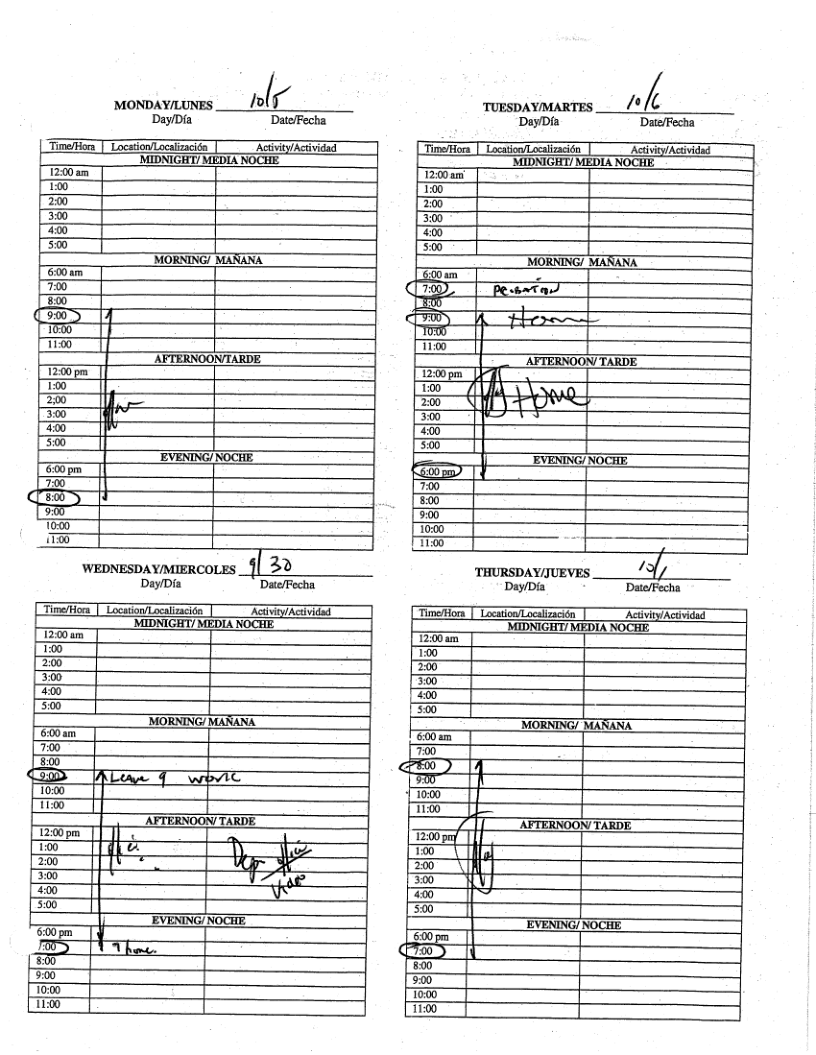 MONDAY/LUNES 10/5
Day/Día Date/Fecha
Time/Hora Location/Localización Activity/Actividad
MIDNIGHT/ MEDIA NOCHE
12:00 am
1:00
2:00
3:00
4:00
5:00
MORNING/ MAÑANA
6:00 am
7:00
8:00
9:00
10:00
11:00
AFTERNOON/TARDE
12:00 pm
1:00
2;00
3:00
4:00
5:00
EVENING/ NOCHE
6:00 pm
7:00
8:00
9:00
10:00
11:00
TUESDAY/MARTES 10/6
Day/Día Date/Fecha
Time/Hora Location/Localización Activity/Actividad
MIDNIGHT/ MEDIA NOCHE
12:00 am
1:00
2:00
3:00
4:00
5:00
MORNING/ MAÑANA
6:00 am
7:00 PROBATION
8:00
9:00 Home
10:00
11:00
AFTERNOON/ TARDE
12:00 pm
1:00
2:00 Home
3:00
4:00
5:00
EVENING/ NOCHE
6:00 pm
7:00
8:00
9:00
10:00
11:00
WEDNESDAY/MIERCOLES 9/30
Day/Día Date/Fecha
Time/Hora Location/Localización Activity/Actividad
MIDNIGHT/ MEDIA NOCHE
12:00 am
1:00
2:00
3:00
4:00
5:00
MORNING/ MAÑANA
6:00 am
7:00
8:00
9:00 Leave 9 work
10:00
11:00
AFTERNOON/ TARDE
12:00 pm
1:00
2:00
3:00
4:00 Video
5:00
EVENING/ NOCHE
6:00 pm
7:00 7 home
8:00
9:00
10:00
11:00
THURSDAY/JUEVES 10/1
Day/Día Date/Fecha
Time/Hora Location/Localización Activity/Actividad
MIDNIGHT/ MEDIA NOCHE
12:00 am
1:00
2:00
3:00
4:00
5:00
MORNING/ MAÑANA
6:00 am
7:00
8:00
9:00
10:00
11:00
AFTERNOON/ TARDE
12:00 pm
1:00
2:00
3:00
4:00
5:00
EVENING/ NOCHE
6:00 pm
7:00
8:00
9:00
10:00
11:00